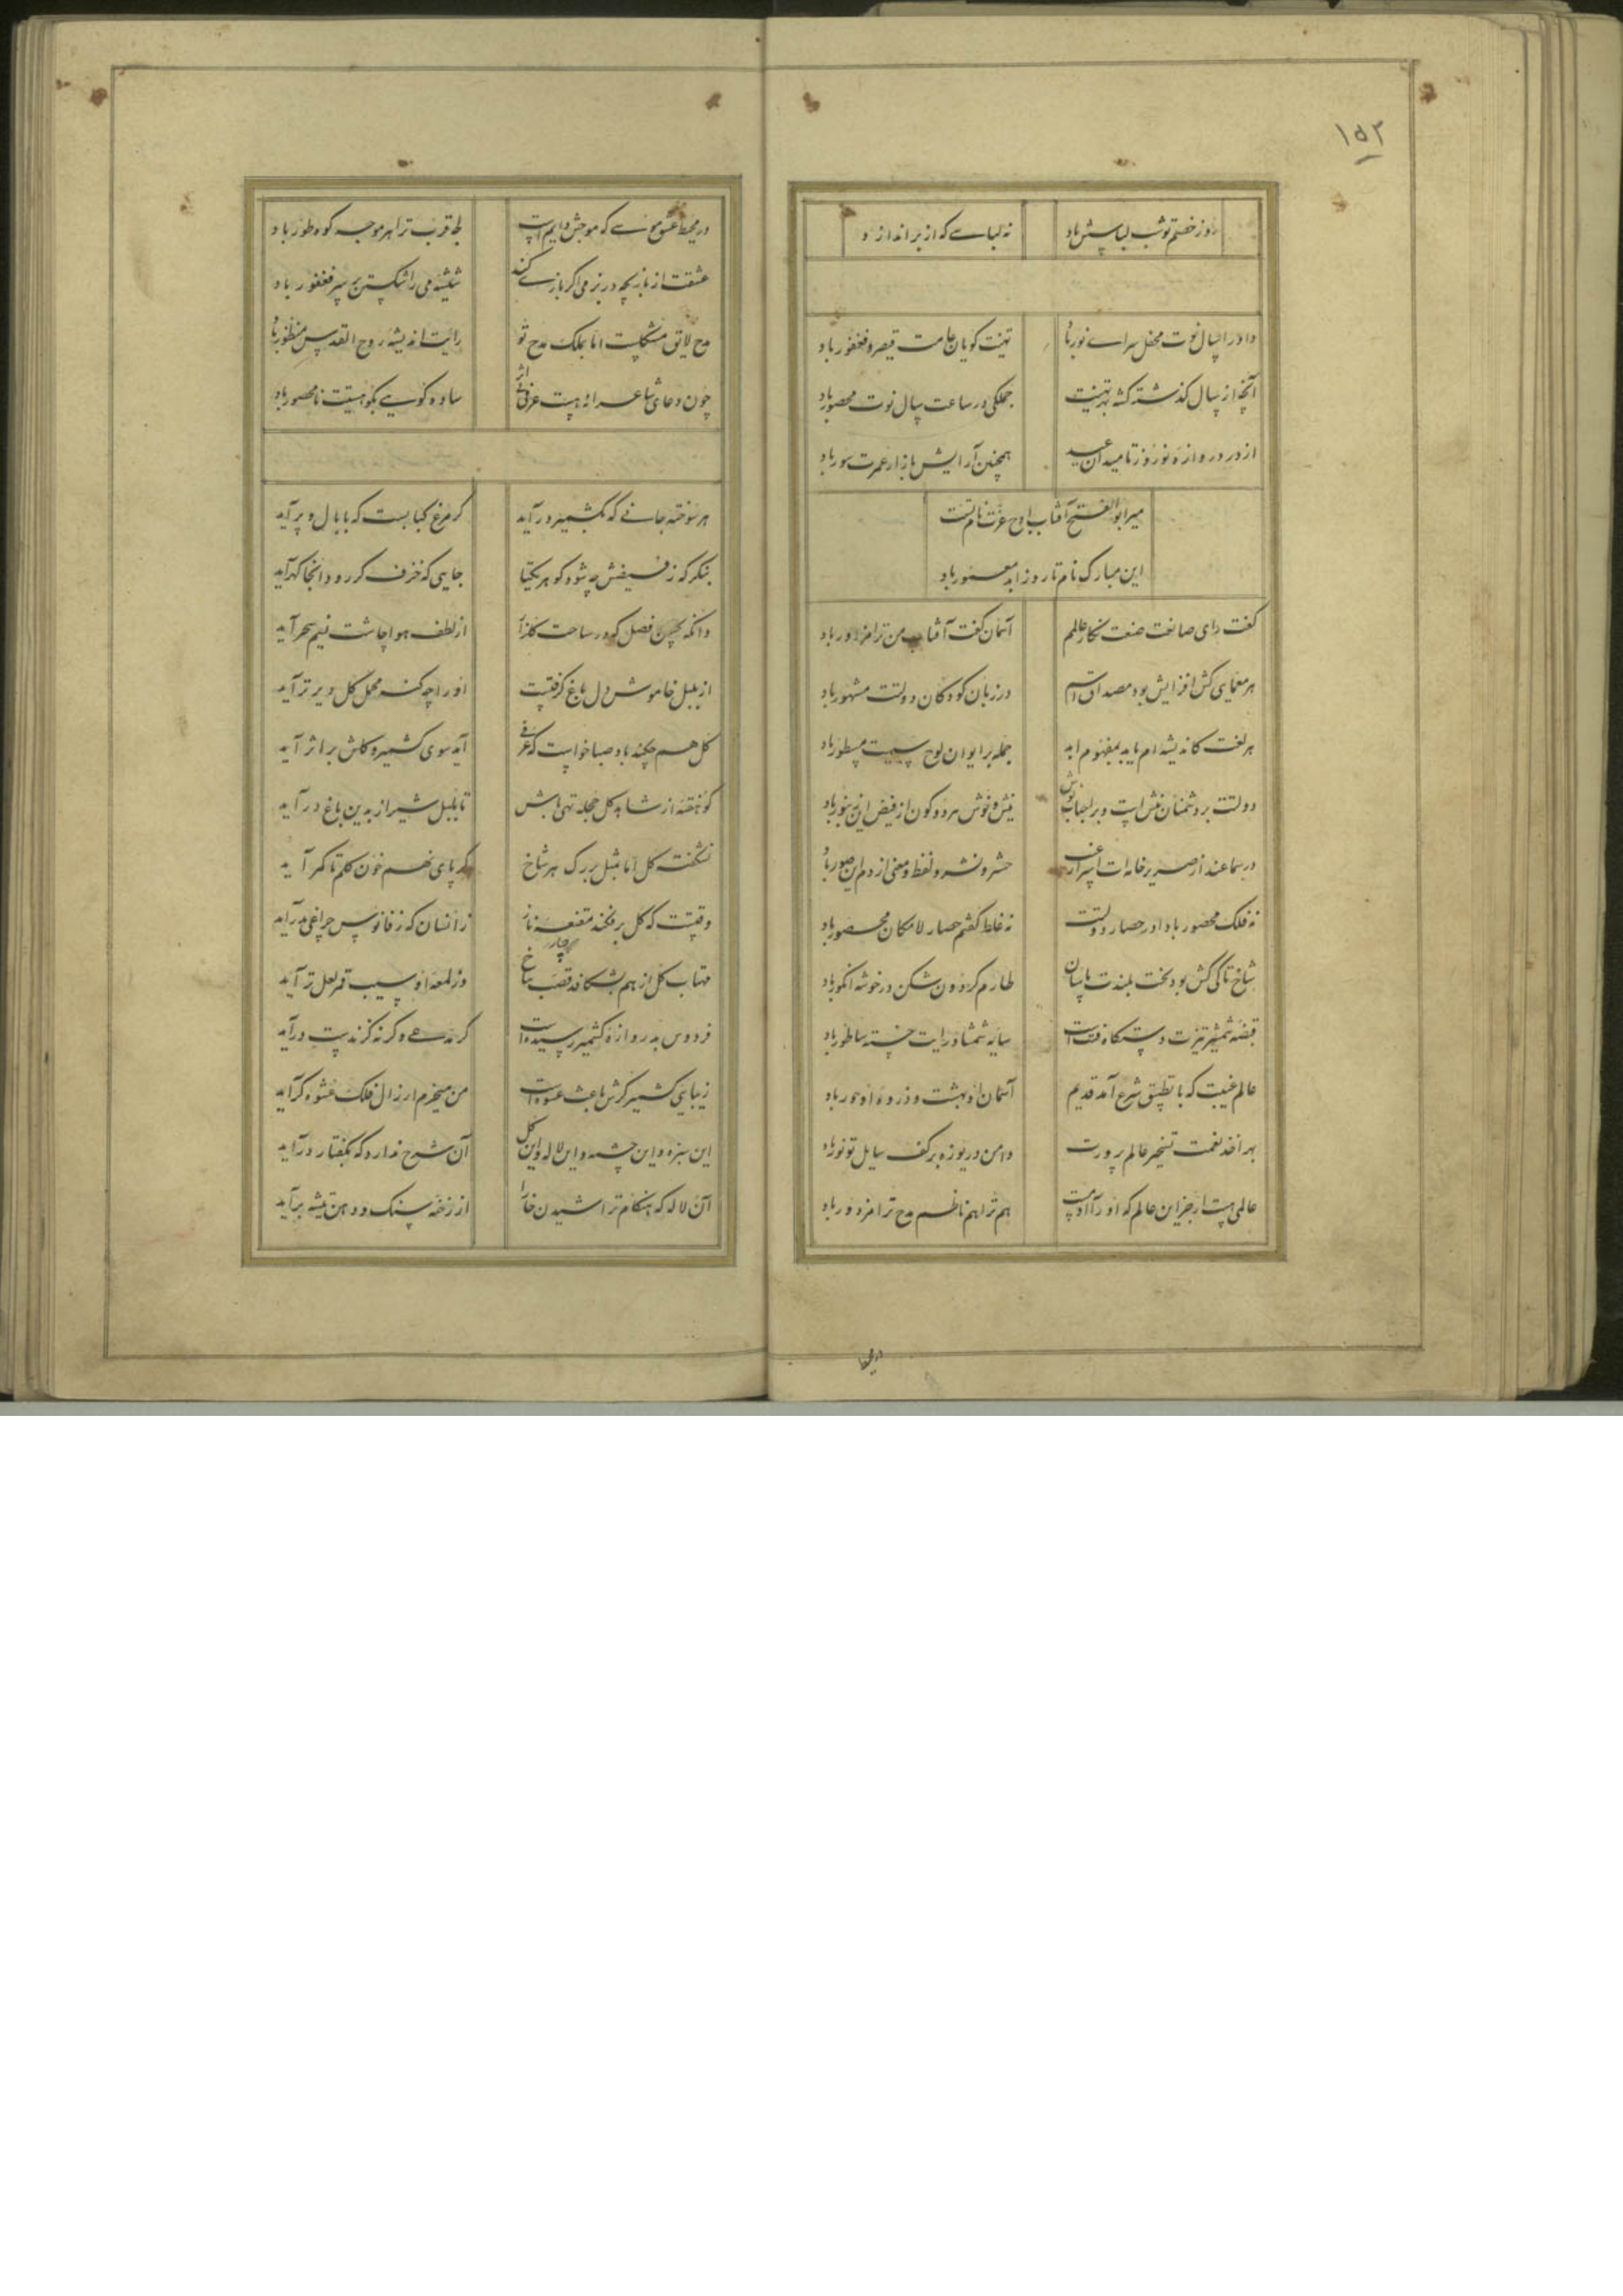 ۱۵۲
روز خصم تو شب لباسش باد
نه لباسے که از بر اندازد
داورا سال نوت محفل سراے نور باد
تهنیت کویان جامت قیصر و فغفور باد
آنچه از سال کذشته کشته تهنیت
جملکی در ساعت سال نوت محصور باد
از در دروازه نوروز تا میدان عید
همچنین آرایش بازار عمرت سور باد
میر ابوالفتح آفتاب اوج عزت نام تست
این مبارک نام تا روز ابد معمور باد
کفت رای صانعت صنعت نکار عالمم
آسمان کفت آفتاب من ترا مزدور باد
هر معمای کش افزایش بود مصداق اسم
در زبان کودکان دولتت مشهور باد
هر لغت کاندیشه ام یابد بمفهوم ابد
جمله بر ایوان لوح مسطور باد
دولتت بر دشمنان نیش است و بر احباب نوش
نیش و نوش هر دو کون از فیض این زنبور باد
در سماعند از صریر خامه ات اسرار غیب
حشر و نشر و لفظ و معنی از دم این صور باد
نه فلک محصور باد اندر حصار دولتت
نه غلط کفتم حصار لامکان محصور باد
شاخ تاکی کش بود بخت بلندت پاسبان
طارم کردون شکن در خوشه انکور باد
قبضه شمشیر تیزت دستکاه فتنه است
سایه شمشاد رایت خسته ساطور باد
عالم غیبت که با تطبیق شرع آمد قدیم
آسمان او بهشت و ذروه او حور باد
بهر اخذ نعمت تسخیر عالم پرورت
دامن دریوزه بر کف سایل تو نور باد
عالمی هست ار جز این عالم که او را آدمیست
هم ترا هم ناظم مدح ترا مزدور باد
در محیط عشق موسے که موجش دایم است
بط قرب ترا هر موجه کوه طور باد
عشقت از بازیچه در بزمی اکر بازے کند
شیشه می را شکستن بر سر فغفور باد
مدح لایق مشکلست اما بملک مدح تو
رایت اندیشه روح القدس منظور باد
چون دعای شاعرانه هست عرفی بی اثر
ساده کویے بکو هستیت نامحصور باد
هر سوخته جانے که بکشمیر درآید
کر مرغ کبابست که با بال و پر آید
بنکر که ز فیضش چه شود کوهر یکتا
جایی که خزف کر رود آنجا کهر آید
وانکه بچنین فصل که در ساحت کلزار
از لطف هوا چاشت نسیم سحر آید
از بلبل خاموش دل باغ کرفتست
او را چه کنه محمل کل دیرتر آید
کل هم چکند باد صبا خواست که عرفی
آید سوی کشمیر و کلش بر اثر آید
کو هفته از شاهد کل حجله تهی باش
تا بلبل شیراز بدین باغ درآید
نشکفت کل اما بمثل بر رک هر شاخ
کر پای نهم خون کلم تا کمر آید
وقتست که کل برفکند مقنعه ناز
زانسان که ز فانوس چراغی بدرآید
مهتاب کل از هم بشکافد قصب شاخ
وز لمعه او سیب قمر لعل تر آید
فردوس بدروازه کشمیر رسیده است
کر مدعے و کر نه کزندیست درآید
زیبایی کشمیر کرش باعث عشوه است
من میخرم ار زال فلک عشوه کر آید
این سبزه و این چشمه و این لاله و این کل
آن شرح ندارد که بکفتار درآید
آن لاله که هنکام تراشیدن خارا
از رخنه سنک و دهن تیشه برآید